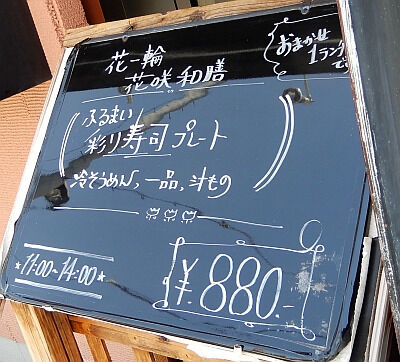 花一輪
花咲和膳
おまかせ
1ラン
で
ふるまい
彩り寿司プレート
冷そうめん、一品、汁もの
11:00~14:00
¥.880.-